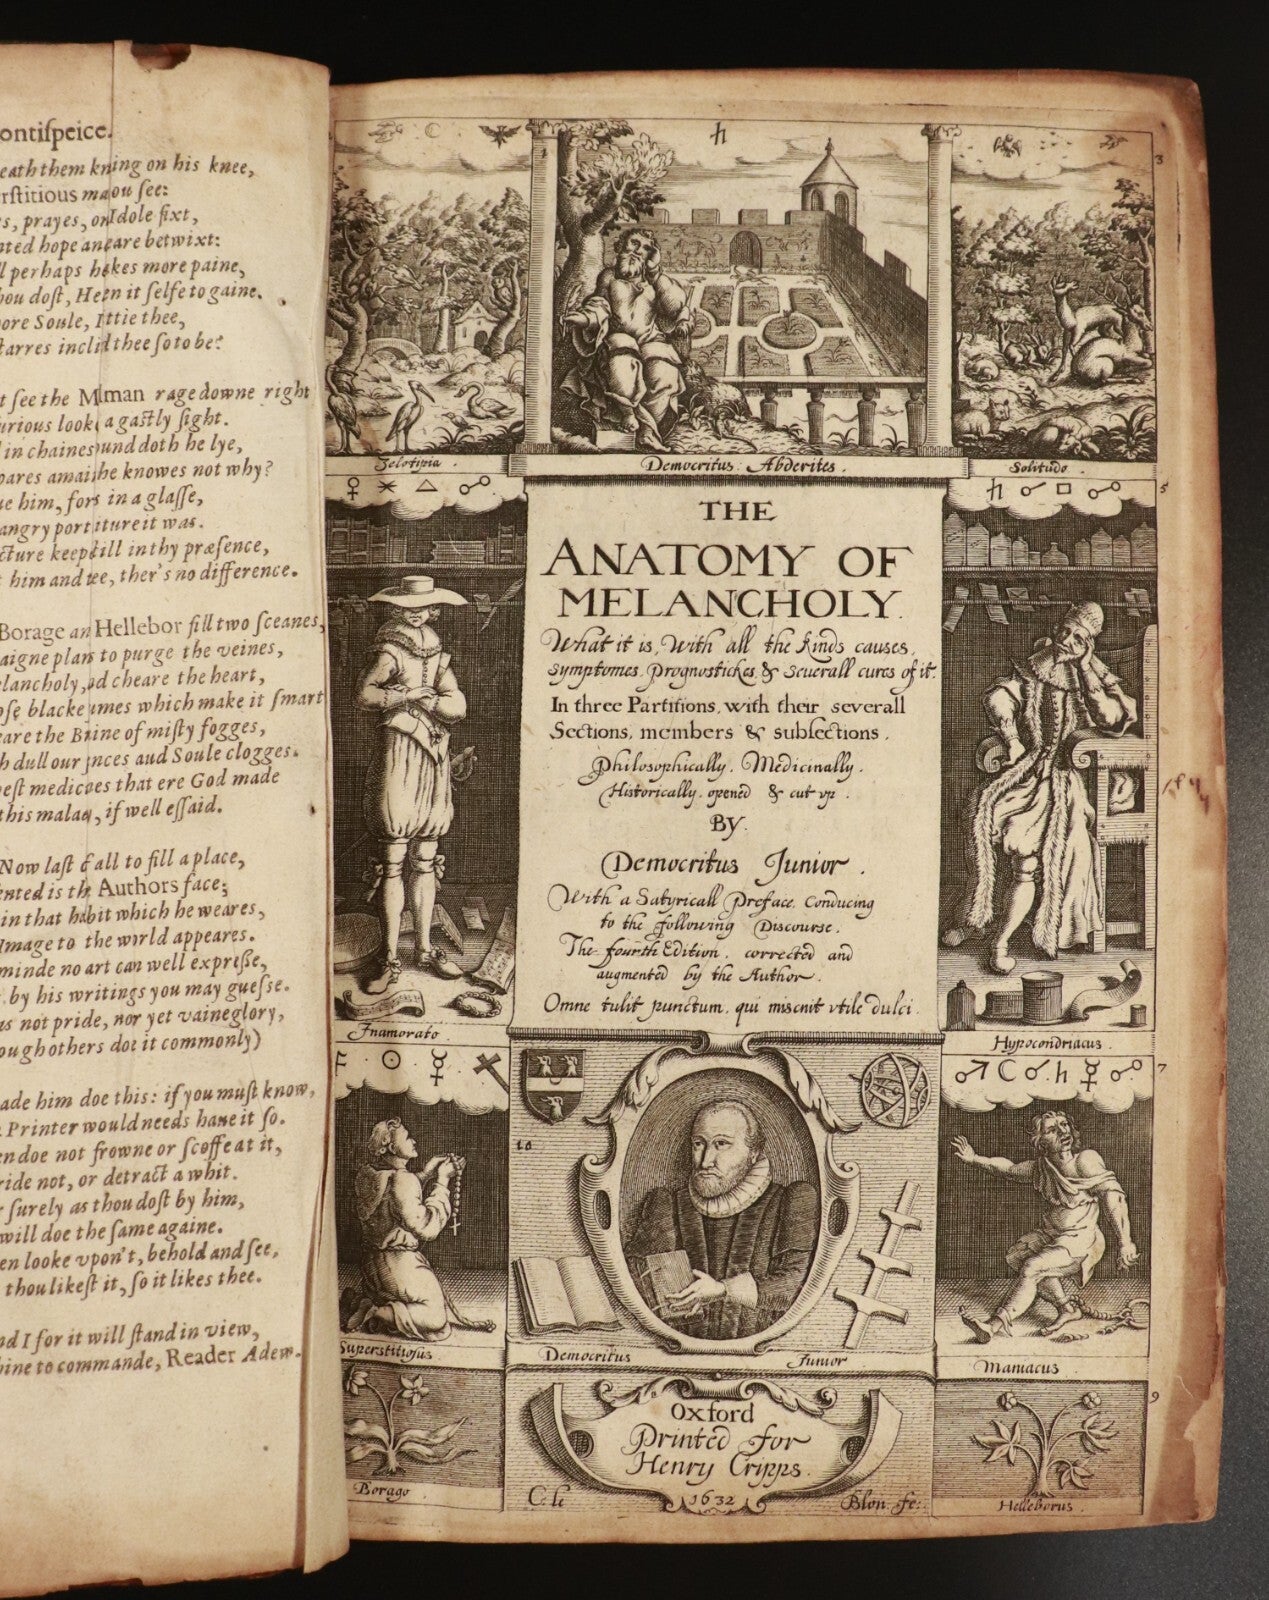 ontiſpeice.
eath them kning on his knee,
rſtitious maou ſee:
s, prayes, onIdole fixt,
nted hope aneare betwixt:
l perhaps hakes more paine,
hou doſt, Heen it ſelfe to gaine.
ore Soule, Ittie thee,
tarres inclidthee ſo to be?
t ſee the Mman rage downe right
urious look a gaſtly ſight.
in chaines unddoth he lye,
oares amai he knowes not why?
ue him, for in a glaſſe,
angry port itureit was.
cture keep ill in thy præſence,
him and ee, ther's no difference.
Borage an Hellebor fill two ſceanes,
aigne plan to purge the veines,
elancholy, d cheare the heart,
oſe blacke umes which make it ſmart
eare the Biine of miſty fogges,
h dull our nces aud Soule clogges.
beſt medicoes that ere God made
this malay, if well eſſaid.
Now laſt all to fill a place,
ented is th Authors face;
in that habit which he weares,
Image to the wrld appeares.
minde no art can well expreſſe,
by his writings you may gueſſe.
as not pride, nor yet vaineglory,
ough others doe it commonly)
ade him doe this: if you muſt know,
Printer would needs haue it ſo.
en doe not frowne or ſcoffe at it,
ride not, or detract a whit.
ſurely as thou doſt by him,
will doe the ſame againe.
en looke vpon't, behold and ſee,
thou likeſt it, ſo it likes thee.
nd I for it will ſtand in view,
hine to commande, Reader Adew.
☾ ♄ 3
Zelotipia. Democritus Abderites. Solitudo.
♀ ⚹ △ ☍
♄ ☌ □ ☍ 5
THE
ANATOMY OF
MELANCHOLY.
What it is, With all the kinds causes,
symptomes, prognostickes, & seuerall cures of it.
In three Partitions, with their severall
Sections, members & subsections.
Philosophically, Medicinally,
Historically, opened & cut vp.
BY.
Democritus Junior.
With a Satyricall Preface, Conducing
to the following Discourse.
The fourth Edition, corrected and
augmented by the Author.
Omne tulit punctum, qui miscuit vtile dulci.
Inamorato.
Hypocondriacus.
☉ ☿
♂ ☾ ☌ ♄ ☿ ☍ 7
10
Superstitiosus
Democritus Junior
Maniacus
Oxford
Printed for
Henry Cripps.
1632
9
Borago
C: le Blon. fe:
Helleborus.